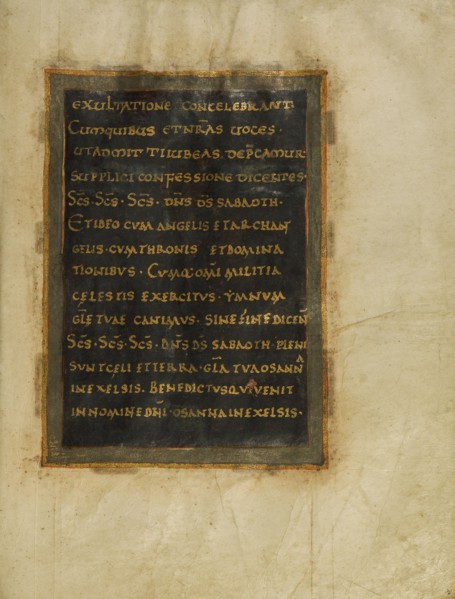 EXULTATIONE CONCELEBRANT.
CUMQUIBUS ETNR̄AS UOCES·
UTADMITTIIUBEAS. DEP̄CAMUR·
SUPPLICI CONFESSIONE DICENTES·
SC̄S·SC̄S·SC̄S·DN̄S D̄S SABAOTH·
ETIDEO CUM ANGELIS ETARCHAN
GELIS·CUMTHRONIS ETDOMINA
TIONIBUS·CUMQ·OMĪ MILITIA
CELESTIS EXERCITUS·YMNUM
GL̄E TUAE CANIMUS·SINE FINE DICEN̄
SC̄S·SC̄S·SC̄S·DN̄S D̄S SABAOTH·PLENI
SUNTCELI ETTERRA·GL̄A TUAOSANNA
INEXELSIS. BENEDICTUSQUIVENIT
INNOMINEDN̄I·OSANNAINEXELSIS·